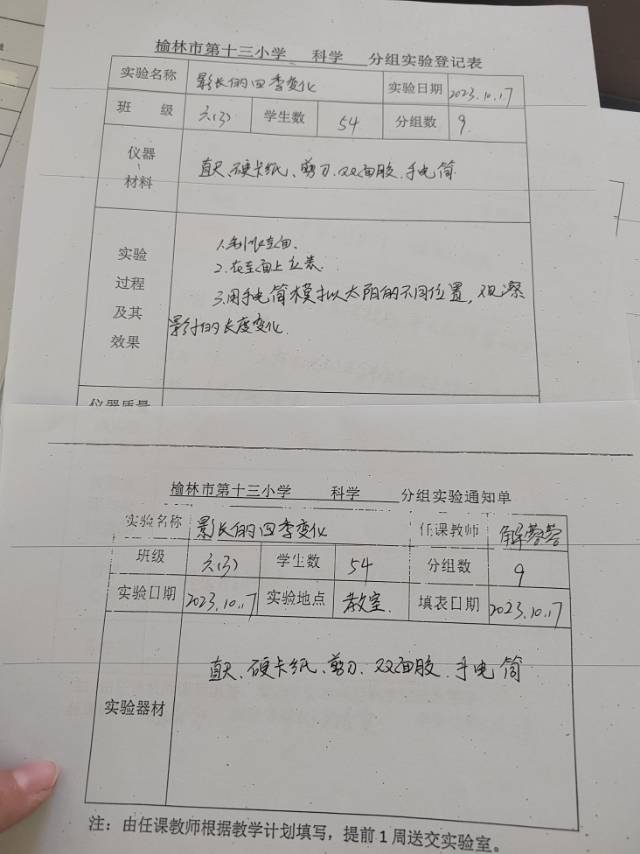 榆林市第十三小学 科学 分组实验登记表
实验名称 影长的四季变化 实验日期 2023.10.17
班 级 六(3) 学生数 54 分组数 9
仪器、材料 直尺、硬卡纸、剪刀、双面胶、手电筒
实验过程及其效果
1.制作圭面.
2.在圭面上立表.
3.用手电筒模拟太阳的不同位置,观察
影子的长度变化.
仪器质量
榆林市第十三小学 科学 分组实验通知单
实验名称 影长的四季变化 任课教师
班级 六(3) 学生数 54 分组数 9
实验日期 2023.10.17 实验地点 教室. 填表日期 2023.10.17
实验器材 直尺、硬卡纸、剪刀、双面胶、手电筒
注:由任课教师根据教学计划填写,提前1周送交实验室。